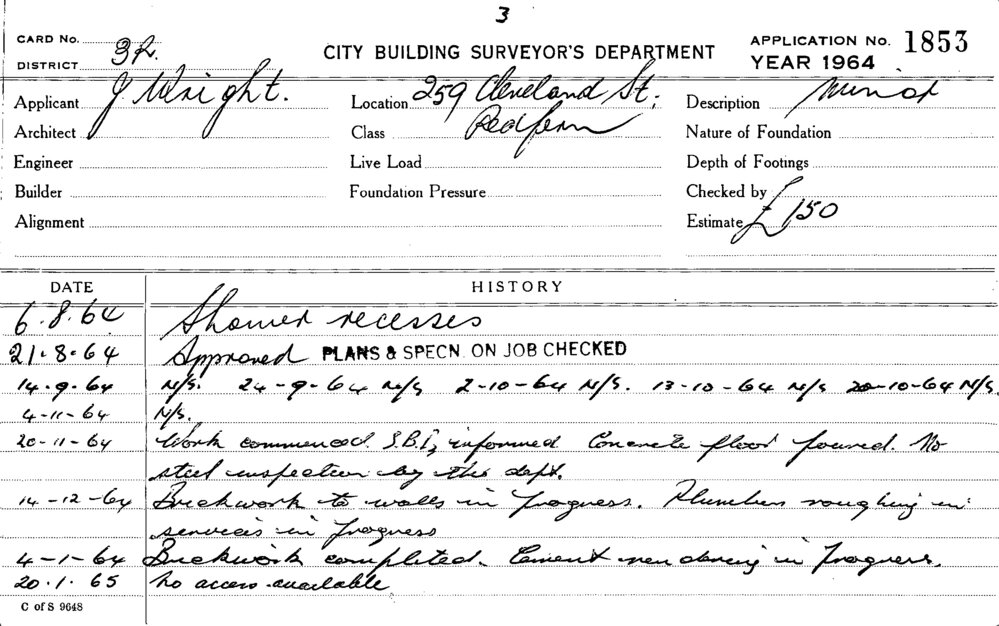 3
CARD No.
DISTRICT 3R.
CITY BUILDING SURVEYOR'S DEPARTMENT
APPLICATION No. 1853
YEAR 1964
Applicant J Wright.
Location 259 Cleveland St;
Description Minor
Architect
Class Redfern
Nature of Foundation
Engineer
Live Load
Depth of Footings
Builder
Foundation Pressure
Checked by
Alignment
Estimate £150
DATE
HISTORY
6.8.64 Shower recesses
21.8.64 Approved PLANS & SPECN. ON JOB CHECKED
14.9.64 N/S. 24-9-64 N/S 2-10-64 N/S. 13-10-64 N/S 20-10-64 N/S.
4-11-64 N/S.
20-11-64 Work commenced. S.B.I, informed Concrete floor poured. No
steel inspection by this dept.
14-12-64 Brickwork to walls in progress. Plumbers roughing in
services in progress
4-1-64 Brickwork completed. Cement rendering in progress.
20.1.65 No access available
C of S 9648